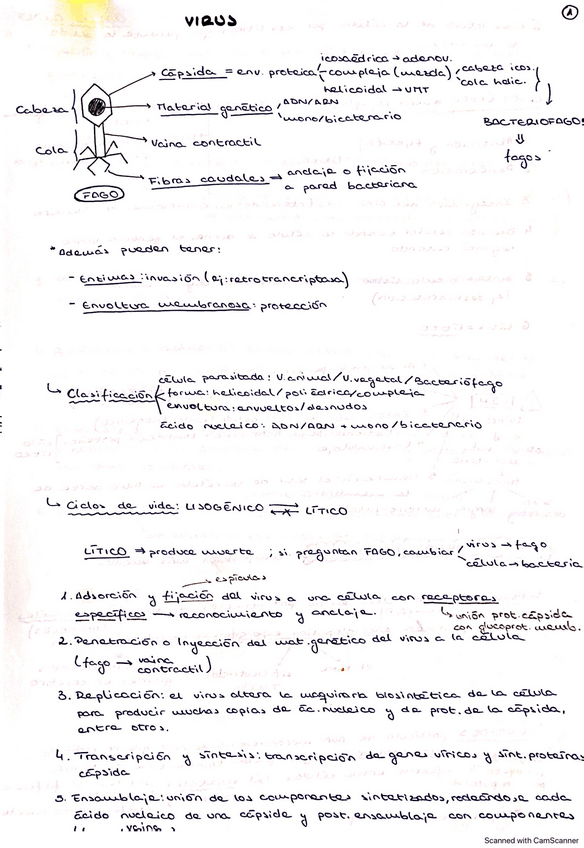 VIRUS
1
Cápsida = env. proteica
icosaédrica → adenov.
compleja (mezcla)
cabeza icos.
cola helic.
helicoidal → VMT
BACTERIÓFAGOS
⇓
fagos
Cabeza
Material genético
ADN/ARN
mono/bicatenario
Cola
Vaina contractil
Fibras caudales ⇒ anclaje o fijación
a pared bacteriana
FAGO
*Además pueden tener:
- Enzimas: invasión (ej: retrotranscriptasa)
- Envoltura membranosa: protección
↳ Clasificación
célula parasitada: V. animal/V. vegetal/Bacteriófago
forma: helicoidal/poliédrica/compleja
envoltura: envueltos/desnudos
ácido nucleico: ADN/ARN + mono/bicatenario
↳ Ciclos de vida: LISOGÉNICO ⇄ LÍTICO
LÍTICO ⇒ produce muerte ; si preguntan FAGO, cambiar
virus → fago
célula → bacteria
→ espículas
1. Adsorción y fijación del virus a una célula con receptores
específicos → reconocimiento y anclaje.
↳ unión prot. cápsida
con glucoprot. memb.
2. Penetración o Inyección del mat. genético del virus a la célula
(fago → vaina
contractil)
3. Replicación: el virus altera la maquinaria biosintética de la célula
para producir muchas copias de ác. nucleico y de prot. de la cápsida,
entre otros.
4. Transcripción y síntesis: transcripción de genes víricos y sínt. proteínas
cápsida
5. Ensamblaje: unión de los componentes sintetizados, rodeándose cada
ácido nucleico de una cápside y post. ensamblaje con componentes
Scanned with CamScanner